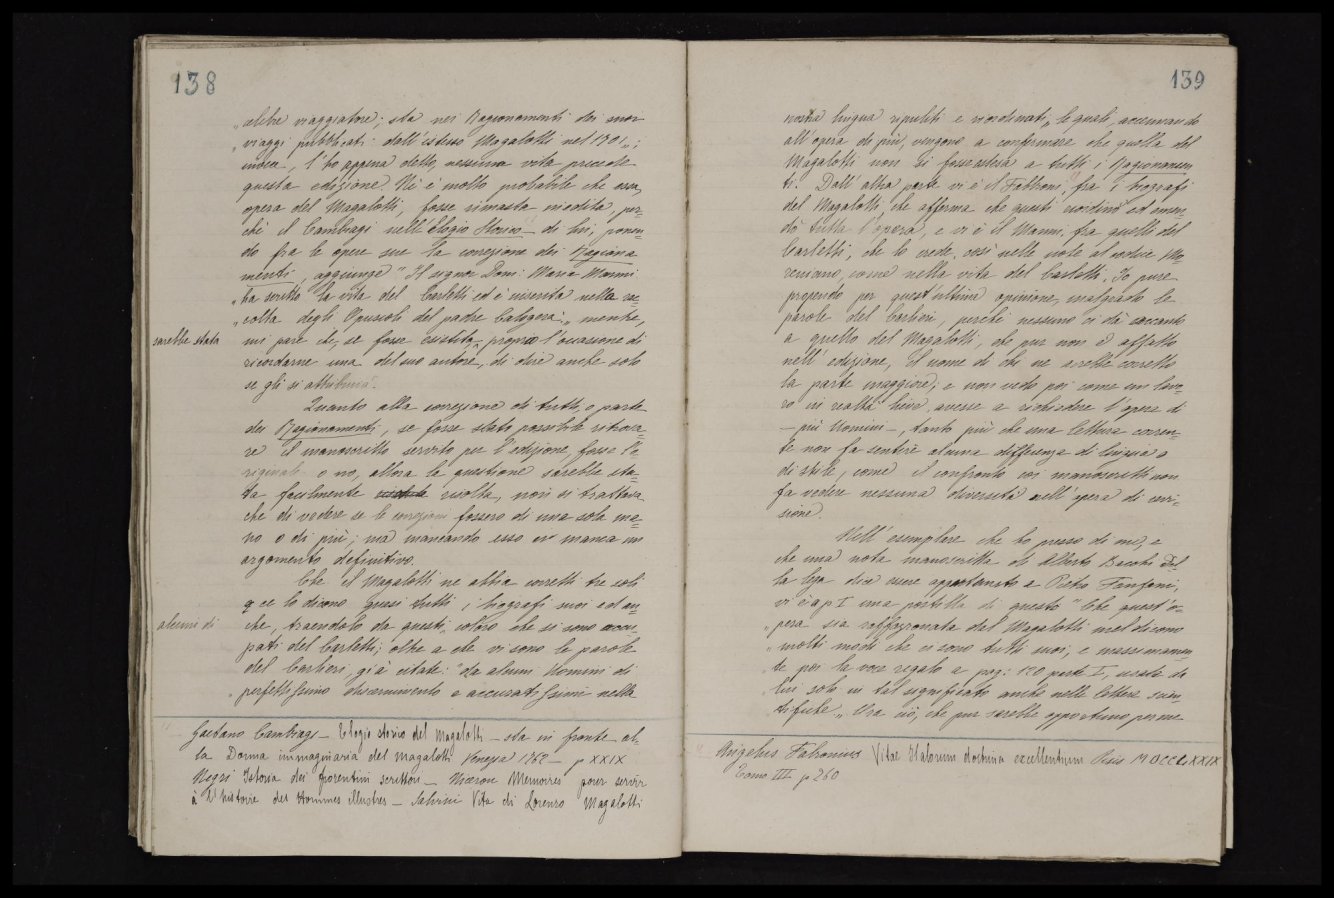 138
„ celebre viaggiatore; sta nei Ragionamenti dei suoi
„ viaggi pubblicati dall'istesso Magalotti nel 1701 „;
invece, l'ho appena detto, nessuna vita precede
questa edizione. Nè è molto probabile che essa,
opera del Magalotti, fosse rimasta inedita, per=
chè il Cambiagi nell'Elogio Storico di lui, ponen=
do fra le opere sue la correzione dei Ragiona
menti, aggiunge " Il signor Dom: Maria Manni
„ ha scritto la vita del Carletti ed è inserita nella rac=
„ colta degli Opuscoli del padre Calogerà: „ mentre,
sarebbe stata
mi pare che, se fosse esistita, proprio l'occasione di
ricordarne una del suo autore, di dire anche solo
se gli si attribuiva.
Quanto alla correzione di tutti, o parte
dei Ragionamenti, se fosse stato possibile ritrova=
re il manoscritto servito per l'edizione, fosse l'o
riginale o no, allora la questione sarebbe sta=
ta facilmente risolta, non si trattava
che di vedere se le correzioni fossero di una sola ma=
no o di più; ma mancando esso ci manca un
argomento definitivo.
Che il Magalotti ne abbia corretti tre soli
ce lo dicono quasi tutti i biografi suoi ed an=
alcuni di
che, traendolo da questi, coloro che si sono occu=
pati del Carletti; oltre a che vi sono le parole
del Carlieri, già citate: "da alcuni Uomini di
„ perfettissimo discernimento e accuratissimi nella
Gaetano Cambiagi - Elogio storico del Magalotti - sta in fronte al=
la Donna immaginaria del Magalotti Venezia 1762 - p XXIX
Negri Istoria dei fiorentini scrittori - Niceron Memoires pour servir
à l'histoire des Hommes illustres - Salvini Vita di Lorenzo Magalotti
139
nostra lingua ripuliti e riordinati, le quali, accennando
all'opera di più, vengono a confermare che quella del
Magalotti non si fosse estesa a tutti i Ragionamen
ti. Dall'altra parte vi è il Fabbroni, fra i biografi
del Magalotti, che afferma che questi riordinò ed emen=
dò tutta l'opera, e vi è il Manni, fra quelli del
Carletti, che lo crede, così nelle note al codice Mo
reniano, come nella vita del Carletti. Io pure
propendo per quest'ultima opinione, malgrado le
parole del Carlieri, perchè nessuno ci dà accanto
a quello del Magalotti, che pur non è affatto
nell'edizione, il nome di chi ne avrebbe corretto
la parte maggiore; e non vedo poi come un lavo=
ro in realtà lieve, avesse a richiedere l'opera di
- più Uomini -, tanto più che una lettura corren=
te non fa sentire alcuna differenza di lingua o
di stile, come il confronto coi manoscritti non
fa vedere nessuna diversità nell'opera di revi=
sione.
Nell'esemplare che ho presso di me, e
che una nota manoscritta di Alberto Bacchi Del
la Lega dice essere appartenuto a Pietro Fanfani,
vi è a p. I una postilla di questo " Che quest'o=
„ pera sia raffazzonata dal Magalotti mel dicono
„ molti modi che ci sono tutti suoi, e massimamen
te poi la voce regalo a pag: 120 parte I, usata da
lui solo in tal significato anche nelle lettere scien=
tifiche „ Ora ciò, che pur sarebbe opportuno per me
Angelus Fabronius Vitae Italorum doctrina excellentium Pisis MDCCLXXIX
Tomo III p 260